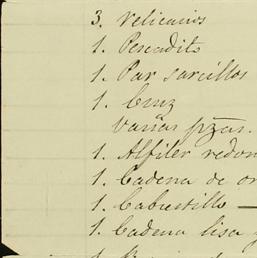 3. Relicarios
1. Pescadito
1. Par sarcillos
1. Cruz
Varias pzas.
1. Alfiler redon
1. Cadena de or
1. Cabestillo —
1. Cadena lisa y